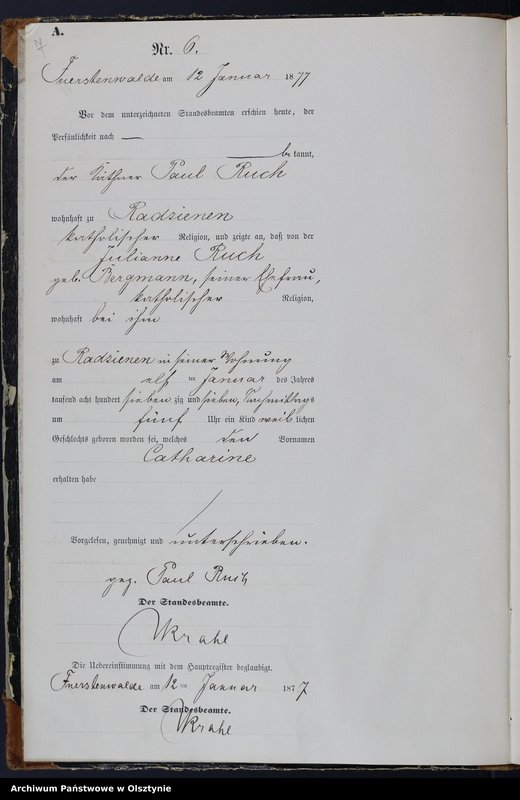 A.
Nr. 6.
Fuerstenwalde am 12 Januar 1877
Vor dem unterzeichneten Standesbeamten erschien heute, der
Persönlichkeit nach —
— be kannt,
der Käthner Paul Ruch
wohnhaft zu Radzienen
katholischer Religion, und zeigte an, daß von der
Julianne Ruch
geb. Bergmann, seiner Ehefrau,
katholischer Religion,
wohnhaft bei ihm
zu Radzienen in seiner Wohnung
am elf ten Januar des Jahres
tausend acht hundert sieben zig und sieben, Nachmittags
um fünf Uhr ein Kind weib lichen
Geschlechts geboren worden sei, welches den Vornamen
Catharine
erhalten habe
Vorgelesen, genehmigt und unterschrieben.
gez. Paul Ruch
Der Standesbeamte.
Krahl
Die Uebereinstimmung mit dem Hauptregister beglaubigt.
Fuerstenwalde am 12 ten Januar 1877
Der Standesbeamte.
Krahl
Archiwum Państwowe w Olsztynie